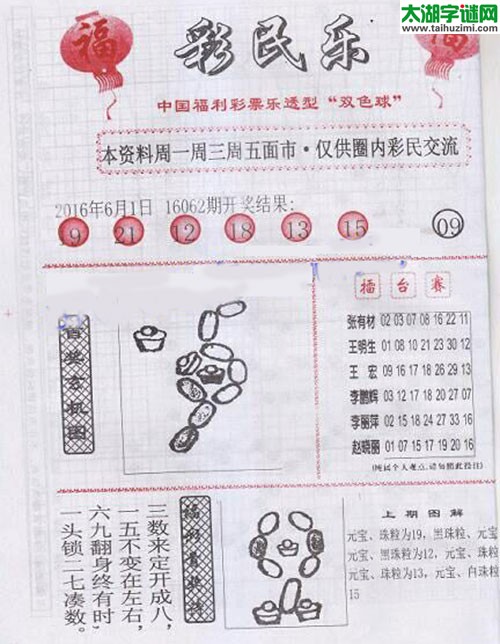 太湖字谜网
www.taihuzimi.com
福
福
彩民乐
中国福利彩票乐透型“双色球”
本资料周一周三周五面市·仅供圈内彩民交流
2016年6月1日 16062期开奖结果:
19 21 12 18 13 15 09
擂台赛
张有材 02 03 07 08 16 22 11
王明生 01 08 10 21 23 30 12
王 宏 09 16 17 18 26 29 13
李鹏辉 03 12 17 18 20 27 07
李丽萍 02 15 18 24 27 33 16
赵晓丽 01 07 15 17 19 20 16
(纯属个人观点,请勿据此投注)
首奖玄机图
三数来定开成八,
一五不变在左右,
六九翻身终有时,
一头锁二七凑数。
上期图解
元宝、珠粒为19,黑珠粒、元宝
元宝、黑珠粒为12,元宝、珠粒
元宝、珠粒为13,元宝、白珠粒
15